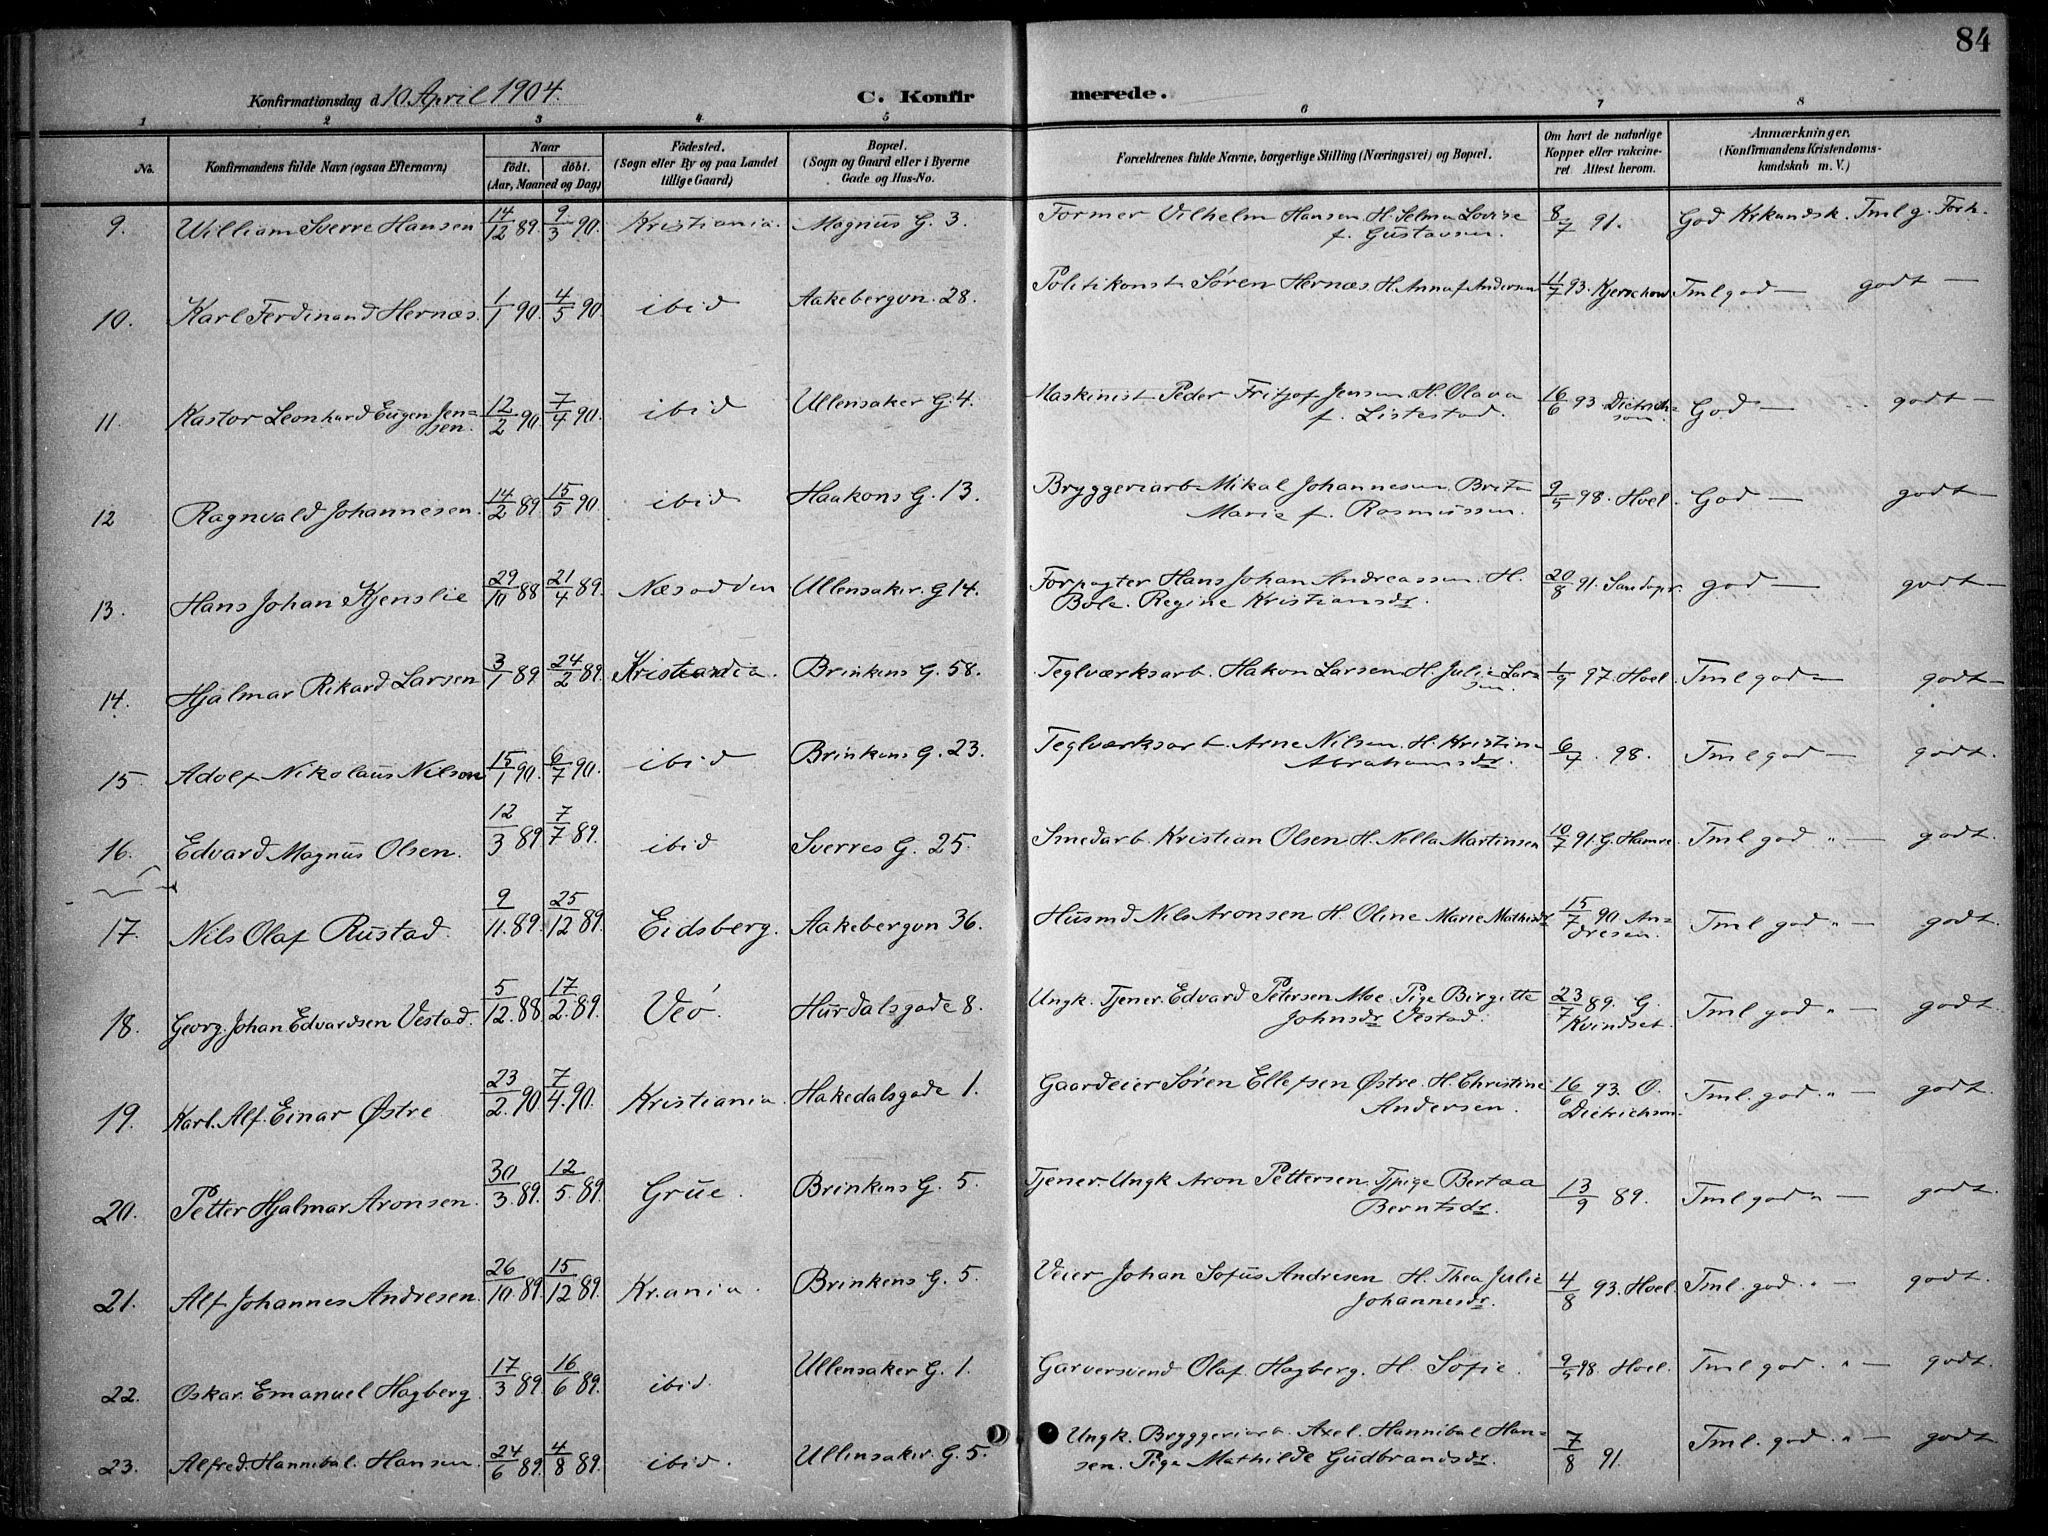 84
Konfirmationsdag d. 10 April 1904.
C. Konfirmerede.
1 2 3 4 5 6 7 8
No. Konfirmandens fulde Navn (ogsaa Efternavn) Naar födt. döbt. (Aar, Maaned og Dag) Födested. (Sogn eller By og paa Landet tillige Gaard) Bopæl. (Sogn og Gaard eller i Byerne Gade og Hus-No. Forældrenes fulde Navne, borgerlige Stilling (Næringsvei) og Bopæl. Om havt de naturlige Kopper eller vakcineret Attest herom. Anmærkninger. (Konfirmandens Kristendomskundskab m. V.)
9. William Sverre Hansen 14/12 89. 9/3 90. Kristiania. Magnus G. 3. Former Vilhelm Hansen H. Selma Lovise f. Gustavsen. 8/7 91. God Krkundsk. Tml g. Forh.
10. Karl Ferdinand Hernæs. 1/1 90. 4/5 90. ibid Aakebergvn. 28. Politikonst Søren Hernæs. H. Anna f. Andersen 11/7 93. Kjerschow Tml god — godt —
11. Kastor Leonhard Eugen Jensen. 12/2 90. 7/4 90. ibid Ullensaker G. 4. Maskinist Peder Fritjof Jensen H. Olava f. Listestad. 16/6 93. Dietrichson. God — godt —
12 Ragnvald Johannesen. 14/2 89 15/5 90 ibid Haakons G. 13. Bryggeriarb Mikal Johannesen Brite Marie f. Rasmussen. 9/5 98. Hoel. God — godt —
13. Hans Johan Kjenslie 29/10 88 21/4 89. Næsodden Ullensaker. G 14. Forpagter Hans Johan Andreassen. H. Bole. Regine Kristiansdr. 20/8 91. Sandspr. god — godt —
14. Hjalmar Rikard Larsen 3/1 89 24/2 89. Kristiania. Brinkens G. 58. Teglværksarb. Hakon Larsen H. Julie Larsen 1/9 97. Hoel. Tml god — godt —
15 Adolf Nikolaus Nilsen 15/1 90. 6/7 90. ibid Brinkens G. 23. Teglværksarb. Arne Nilsen. H. Kristine Abrahamsdr. 6/4. 98. Tml god — godt.
16. Edvard Magnus Olsen. 12/3 89. 7/7 89. ibid Sverres G. 25. Smedarb. Kristian Olsen H. Nella Martinsen 10/7 91. G. Hamre. Tml god " — godt.
17. Nils Olaf Rustad. 9/11. 89. 25/12 89. Eidsberg. Aakebergvn 36. Husmd Nils Aronsen H. Oline Marie Mathisdr 15/7 90 Andresen. Tml god " — godt.
18. Georg Johan Edvardsen Vestad. 5/12. 88. 17/2. 89. Veø. Hurdalsgade 8. Ungk. Tjener. Edvard Petersen Moe. Pige Birgitte Johnsdr Vestad. 23/7 89. G. Kvindset. Tml god " — godt.
19. Karl. Alf. Einar Østre 23/2. 90 7/4. 90. Kristiania. Hakedalsgade 1. Gaardeier Søren Ellefsen Østre. H. Christine Andersen. 16/6 93. O. Dietrichson. Tml. god. " — godt.
20. Petter Hjalmar Aronsen. 30/3. 89. 12/5. 89. Grue. Brinkens G. 5. Tjener. Ungk Aron Pettersen. Tjpige Bertaa Berntsdr. 13/9 89. Tml god " — godt.
21. Alf Johannes Andresen. 26/10. 89. 15/12 89. Kr.ania. Brinkens G. 5. Veier Johan Sofus Andresen H. Thea Julie Johannesdr. 4/8 93. Hoel. Tml. god. " — godt.
22. Oskar. Emanuel Hagberg. 17/3 89. 16/6 89. ibid. Ullensaker G. 1. Garversvend Olaf Hagberg. H. Sofie. 9/5 98. Hoel. Tml god. " — godt.
23. Alfred. Hannibal. Hansen. 24/6 89. 4/8 89. ibid. Ullensaker. G. 5. Ungk. Bryggeriarb. Axel. Hannibal Hansen. Pige Mathilde Gudbrandsdr. 7/8 91. Tml. god. " — godt.